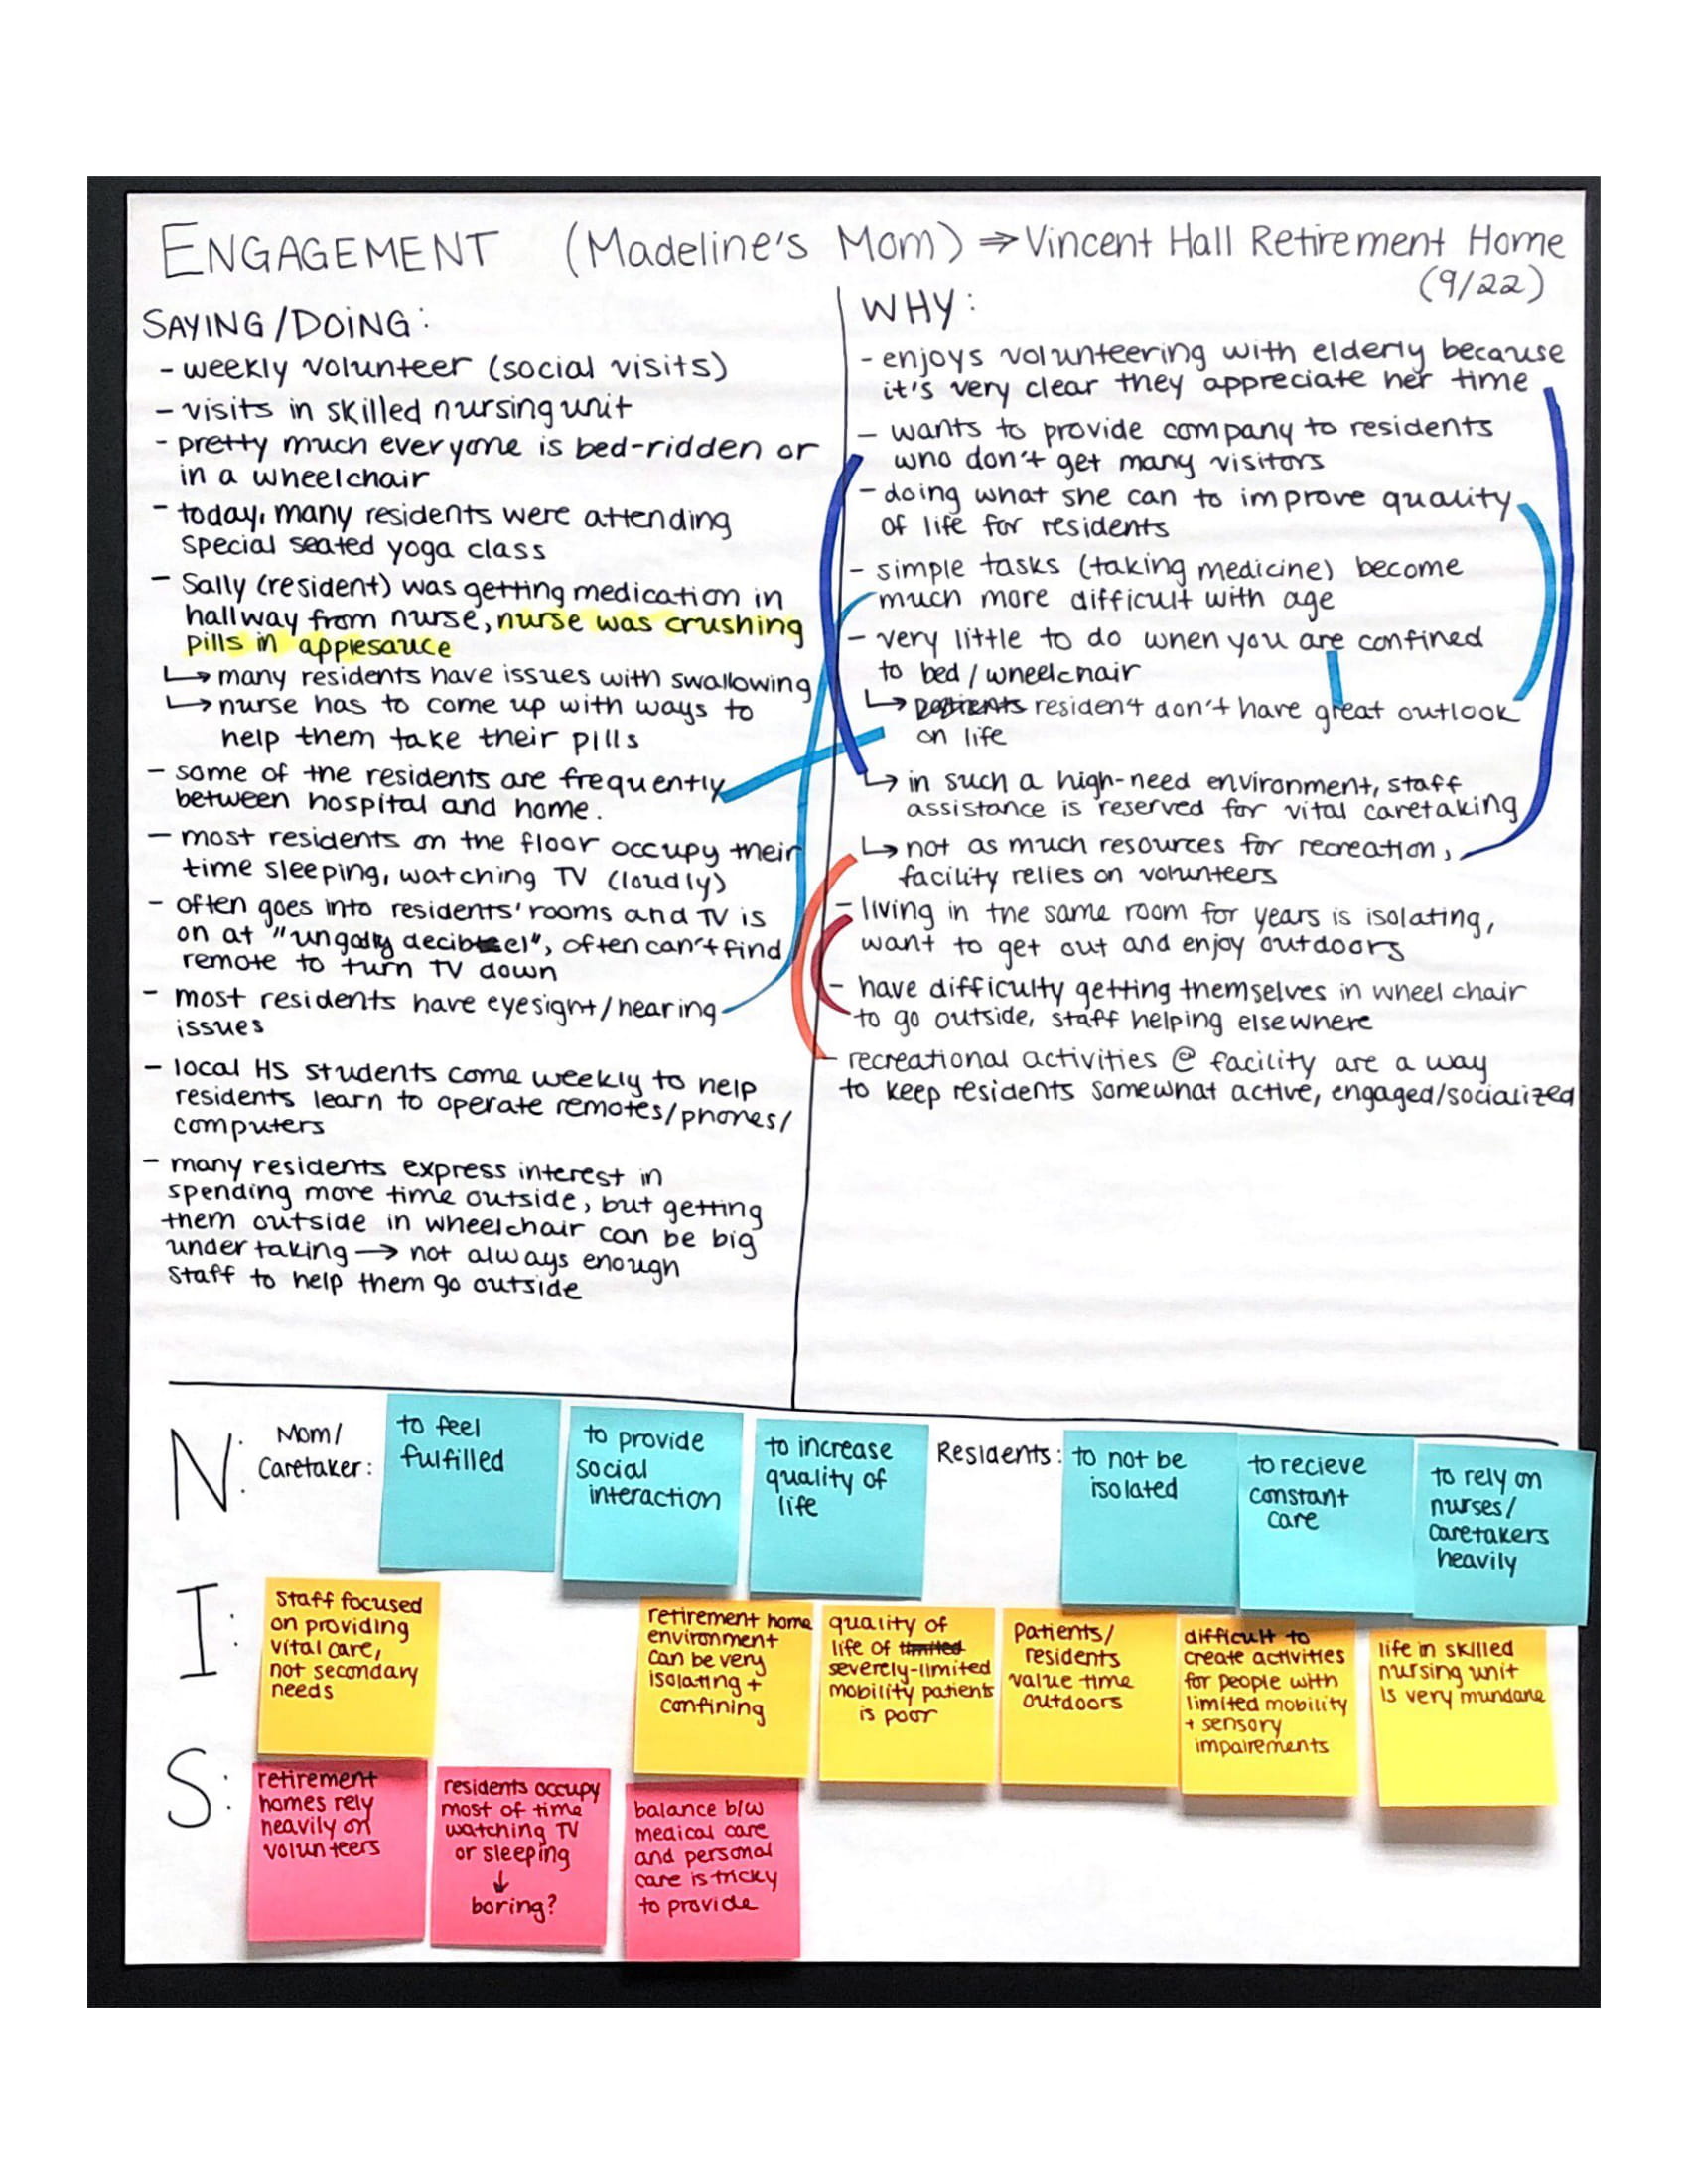 ENGAGEMENT (Madeline's Mom) ⇒ Vincent Hall Retirement Home
(9/22)
SAYING/DOING:
- weekly volunteer (social visits)
- visits in skilled nursing unit
- pretty much everyone is bed-ridden or
in a wheelchair
- today, many residents were attending
special seated yoga class
- Sally (resident) was getting medication in
hallway from nurse, nurse was crushing
pills in applesauce
↳ many residents have issues with swallowing
↳ nurse has to come up with ways to
help them take their pills
- some of the residents are frequently
between hospital and home.
- most residents on the floor occupy their
time sleeping, watching TV (loudly)
- often goes into residents' rooms and TV is
on at "ungodly decibel", often can't find
remote to turn TV down
- most residents have eyesight/hearing
issues
- local HS students come weekly to help
residents learn to operate remotes/phones/
computers
- many residents express interest in
spending more time outside, but getting
them outside in wheelchair can be big
undertaking → not always enough
staff to help them go outside
WHY:
- enjoys volunteering with elderly because
it's very clear they appreciate her time
- wants to provide company to residents
who don't get many visitors
- doing what she can to improve quality
of life for residents
- simple tasks (taking medicine) become
much more difficult with age
- very little to do when you are confined
to bed/wheelchair
↳ patients resident don't have great outlook
on life
↳ in such a high-need environment, staff
assistance is reserved for vital caretaking
↳ not as much resources for recreation,
facility relies on volunteers
- living in the same room for years is isolating,
want to get out and enjoy outdoors
- have difficulty getting themselves in wheel chair
to go outside, staff helping elsewhere
- recreational activities @ facility are a way
to keep residents somewhat active, engaged/socialized
N:
Mom/
Caretaker:
to feel
fulfilled
to provide
social
interaction
to increase
quality of
life
Residents:
to not be
isolated
to recieve
constant
care
to rely on
nurses/
caretakers
heavily
I:
staff focused
on providing
vital care,
not secondary
needs
retirement home
environment
can be very
isolating +
confining
quality of
life of limited
severely-limited
mobility patients
is poor
patients/
residents
value time
outdoors
difficult to
create activities
for people with
limited mobility
+ sensory
impairements
life in skilled
nursing unit
is very mundane
S:
retirement
homes rely
heavily on
volunteers
residents occupy
most of time
watching TV
or sleeping
↓
boring?
balance b/w
medical care
and personal
care is tricky
to provide